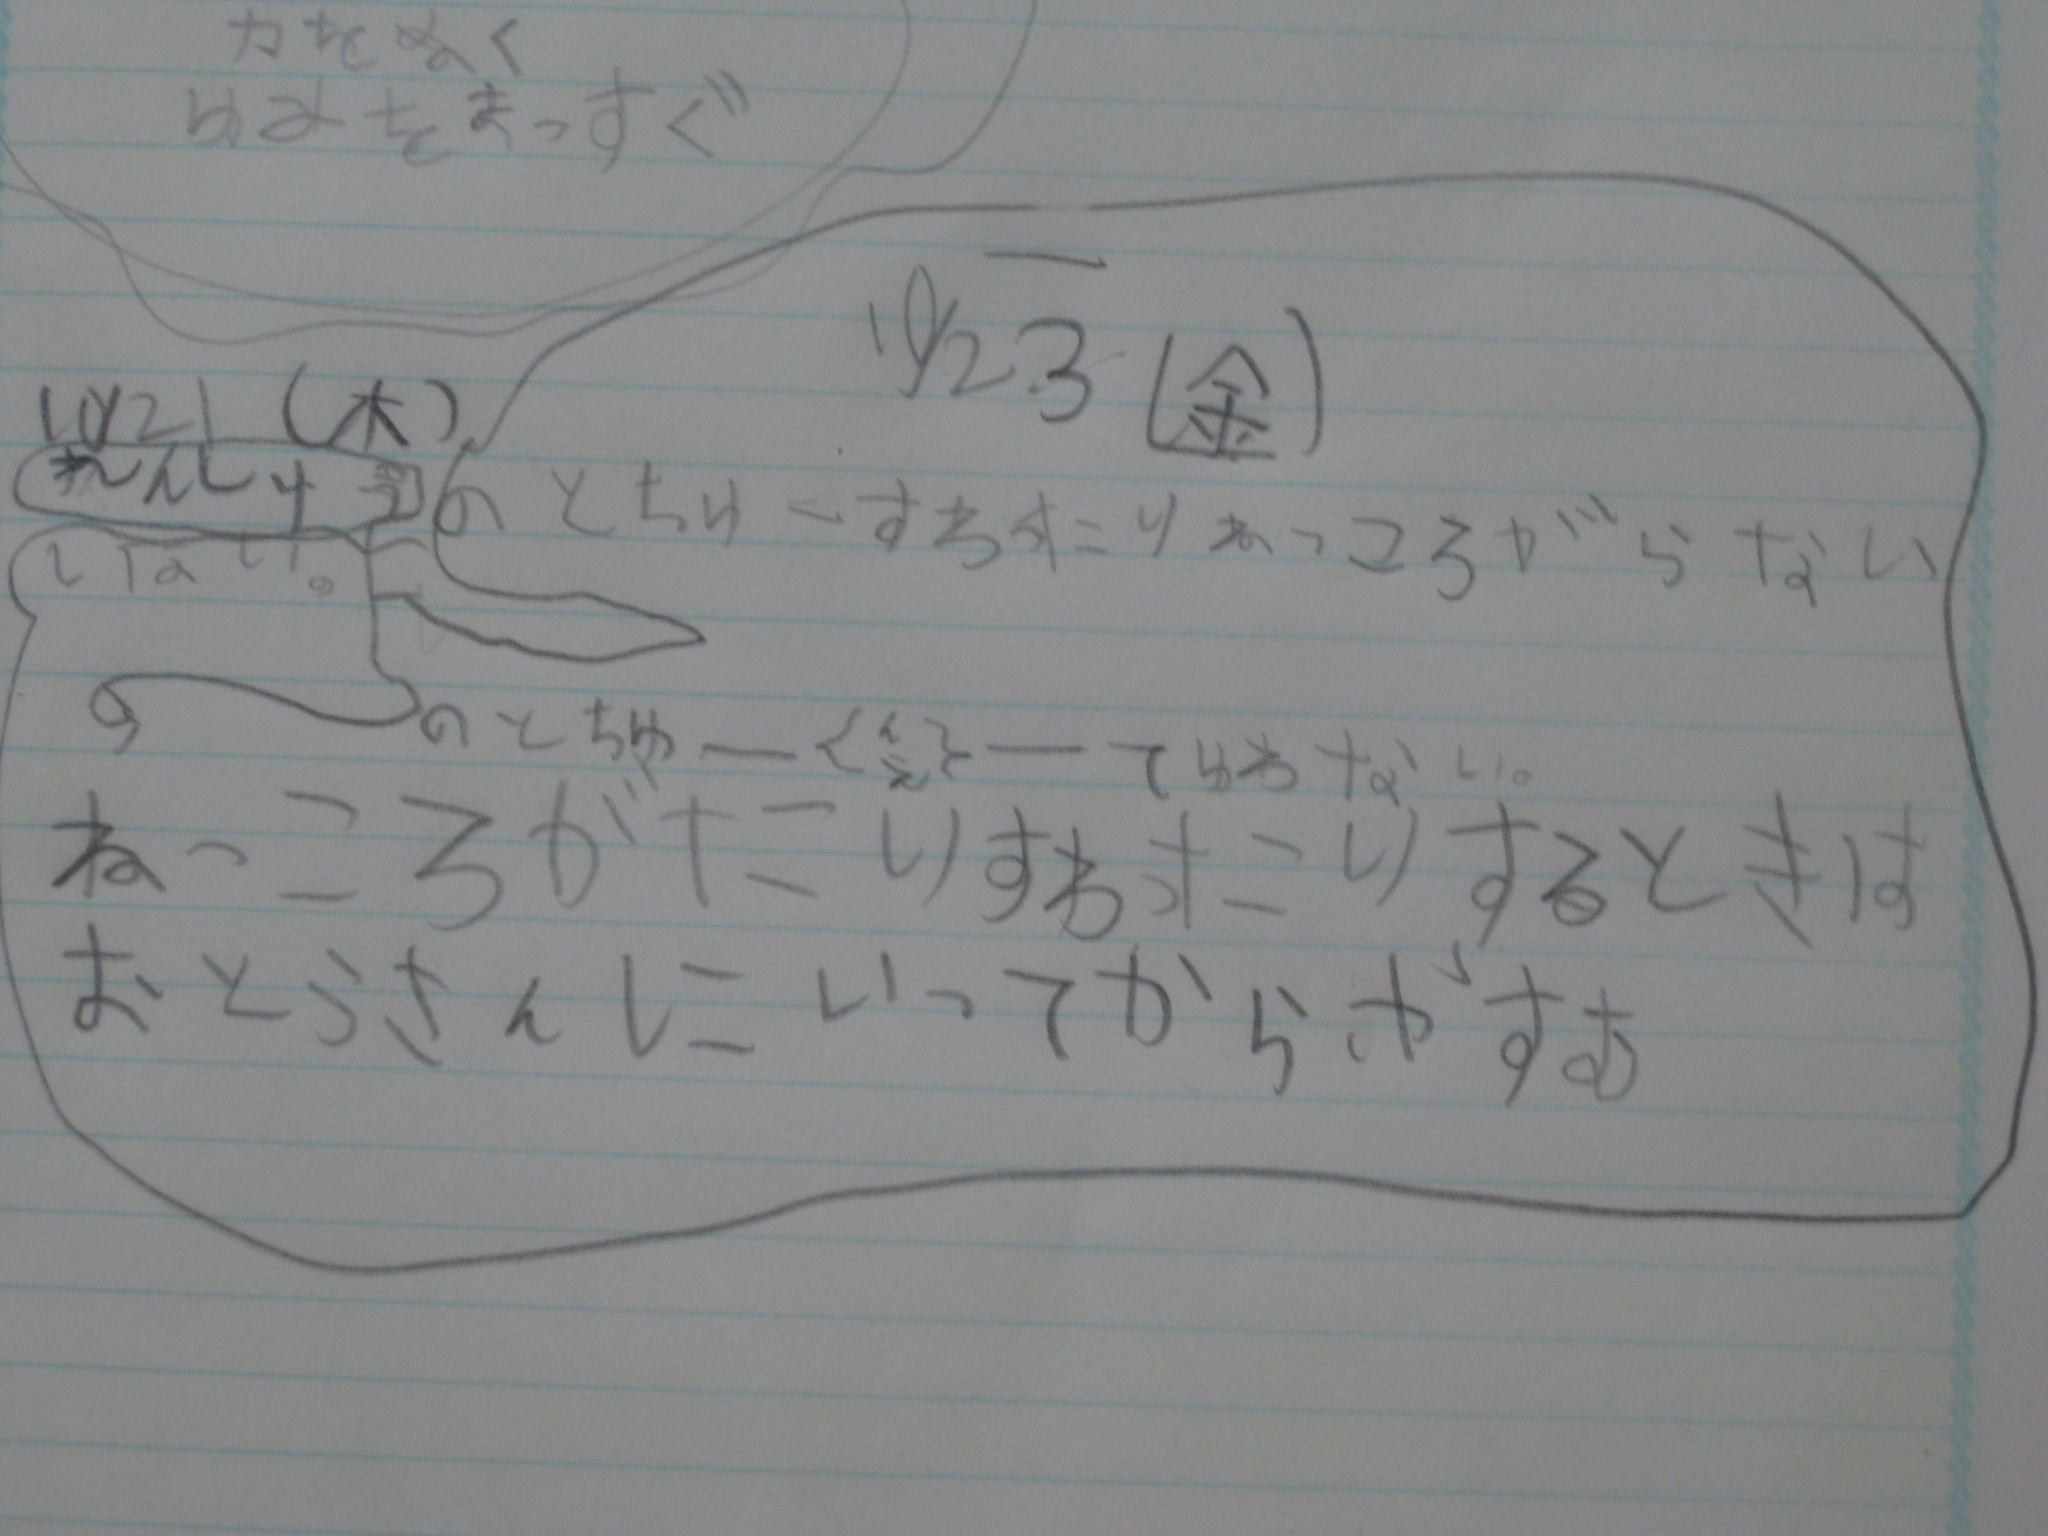 力をぬく
ゆみをまっすぐ
10/23(金)
10/21(木)
れんしゅうのとちゅーすわたりねっころがらない
しはい。
のとちゅーくえーてゆわない。
ねっころがたこりすわたこりするときは
おとうさんにいってからやすむ